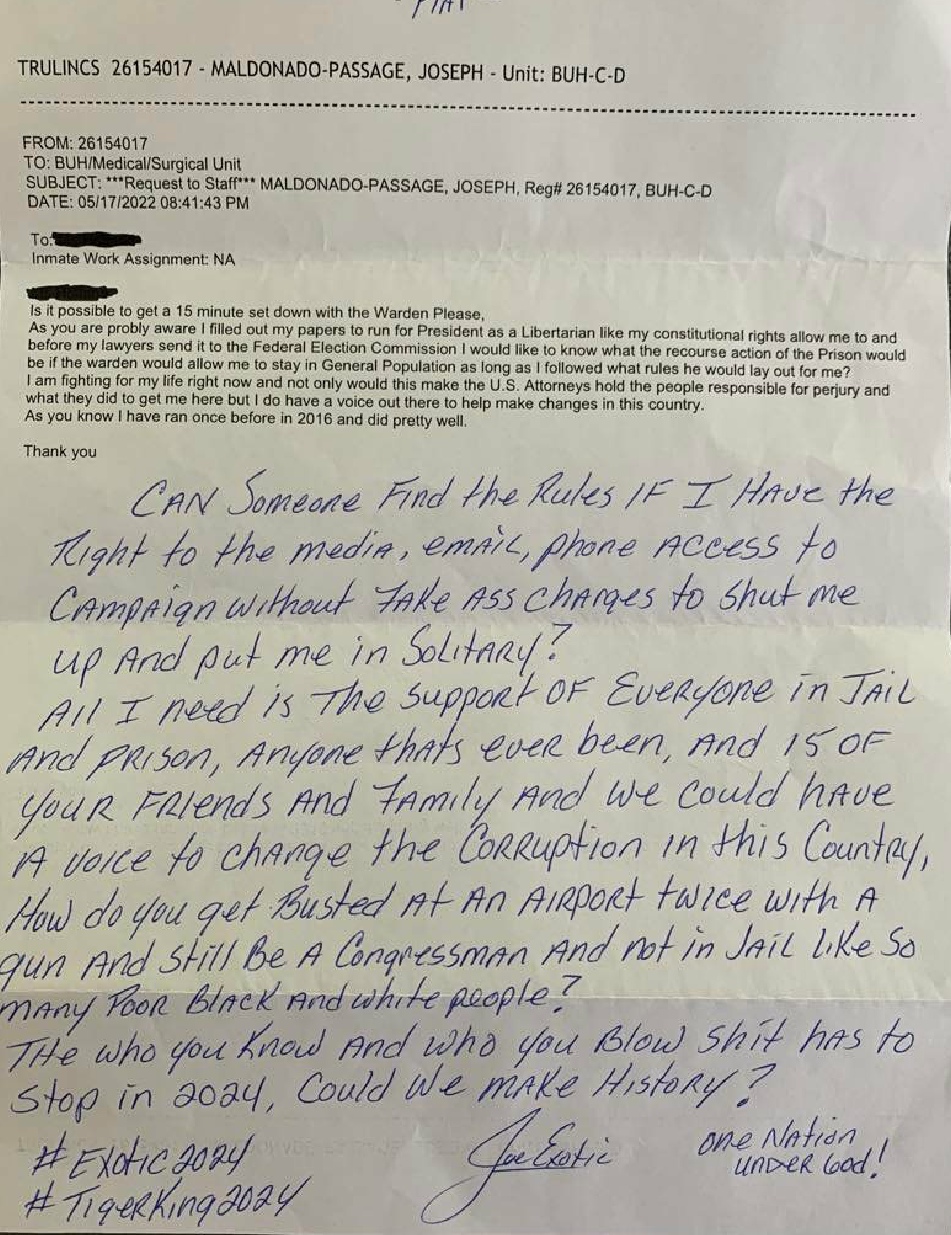 TRULINCS 26154017 - MALDONADO-PASSAGE, JOSEPH - Unit: BUH-C-D
FROM: 26154017
TO: BUH/Medical/Surgical Unit
SUBJECT: ***Request to Staff*** MALDONADO-PASSAGE, JOSEPH, Reg# 26154017, BUH-C-D
DATE: 05/17/2022 08:41:43 PM
To:
Inmate Work Assignment: NA
Is it possible to get a 15 minute set down with the Warden Please,
As you are probly aware I filled out my papers to run for President as a Libertarian like my constitutional rights allow me to and
before my lawyers send it to the Federal Election Commission I would like to know what the recourse action of the Prison would
be if the warden would allow me to stay in General Population as long as I followed what rules he would lay out for me?
I am fighting for my life right now and not only would this make the U.S. Attorneys hold the people responsible for perjury and
what they did to get me here but I do have a voice out there to help make changes in this country.
As you know I have ran once before in 2016 and did pretty well.
Thank you
CAN Someone Find the Rules IF I HAve the
Right to the mediA, emAiL, phone ACCess to
CAmpAign without FAke Ass chArges to Shut me
up And put me in SoLitARy?
All I need is The Support OF EveRyone in JAiL
And PRison, Anyone thAts ever been, And 15 OF
your FRiends And FAmily And we Could hAve
A voice to chAnge the CoRRuption in this CountRy,
How do you get Busted At An AiRpoRt twice with A
gun And Still Be A CongressmAn And not in JAiL like So
mAny PooR BlAck And white people?
THe who you Know And who you Blow Shit hAs to
Stop in 2024, Could We mAke HistoRy?
# Exotic 2024
# TigeRKing2024
Joe Exotic
one NAtion
undeR God!